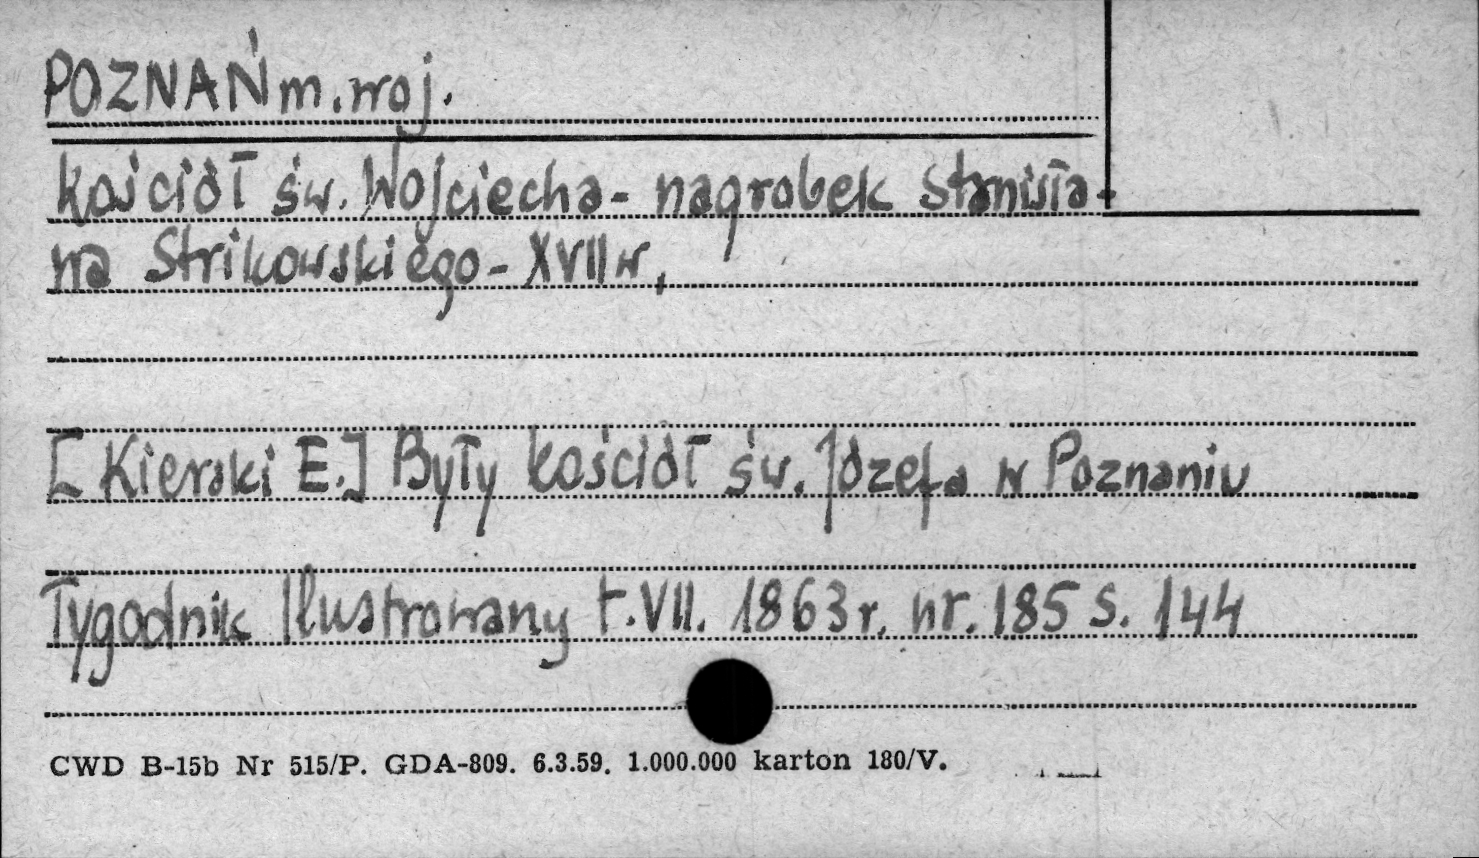 POZNAŃ m. woj.
Kościół św. Wojciecha - nagrobek Stanisła-
wa Strikowskiego - XVII w.
[Kierski E.] Były kościół św. Józefa w Poznaniu
Tygodnik Ilustrowany t. VII. 1863 r. nr. 185 s. 144
CWD B-15b Nr 515/P. GDA-809. 6.3.59. 1.000.000 karton 180/V.